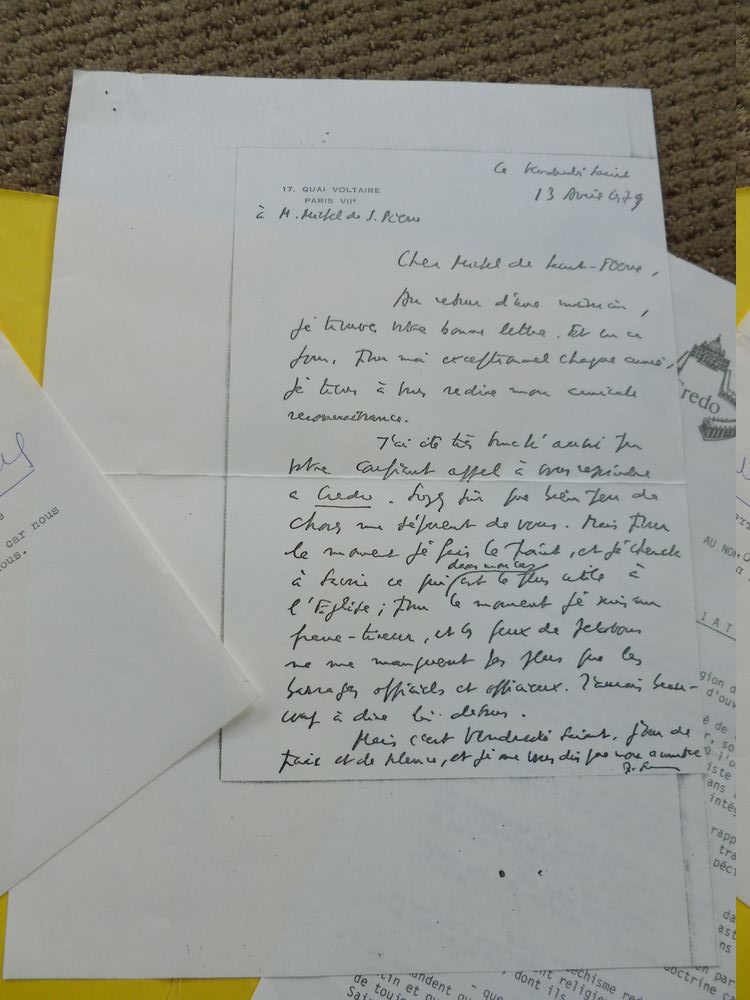 le Vendredi Saint
13 Avril 1979
17, QUAI VOLTAIRE
PARIS VIIᵉ
à M. Michel de S. Pierre
Cher Michel de Saint-Pierre,
Au retour d'une
je trouve votre bonne lettre. Et en ce
jour, pour moi exceptionnel chaque année,
je tiens à vous redire mon amicale
reconnaissance.
J'ai été très touché aussi par
votre confiant appel à vous rejoindre
à Credo. Soyez sûr que bien peu de
choses me séparent de vous. Mais pour
le moment je fais le point, et je cherche
à savoir ce qui dans mon cas est le plus utile à
l'Eglise ; pour le moment je suis un
franc-tireur, et les feux de
ne me manquent pas plus que les
barrages officiels et officieux. J'aurais beau-
coup à dire là-dessus.
Mais c'est Vendredi Saint, jour de
paix et de silence, et je me
Credo
car nous
nous.
AU NOM
IAT
gion d
d'ouv
é de
r, so
iste
ans
intég
rapp
tra
péci
da
ast
ns
en par
doctrine c
échisme red
dont ils
ent religie
andent qu
- que
tin et qu
de toujo
Sai